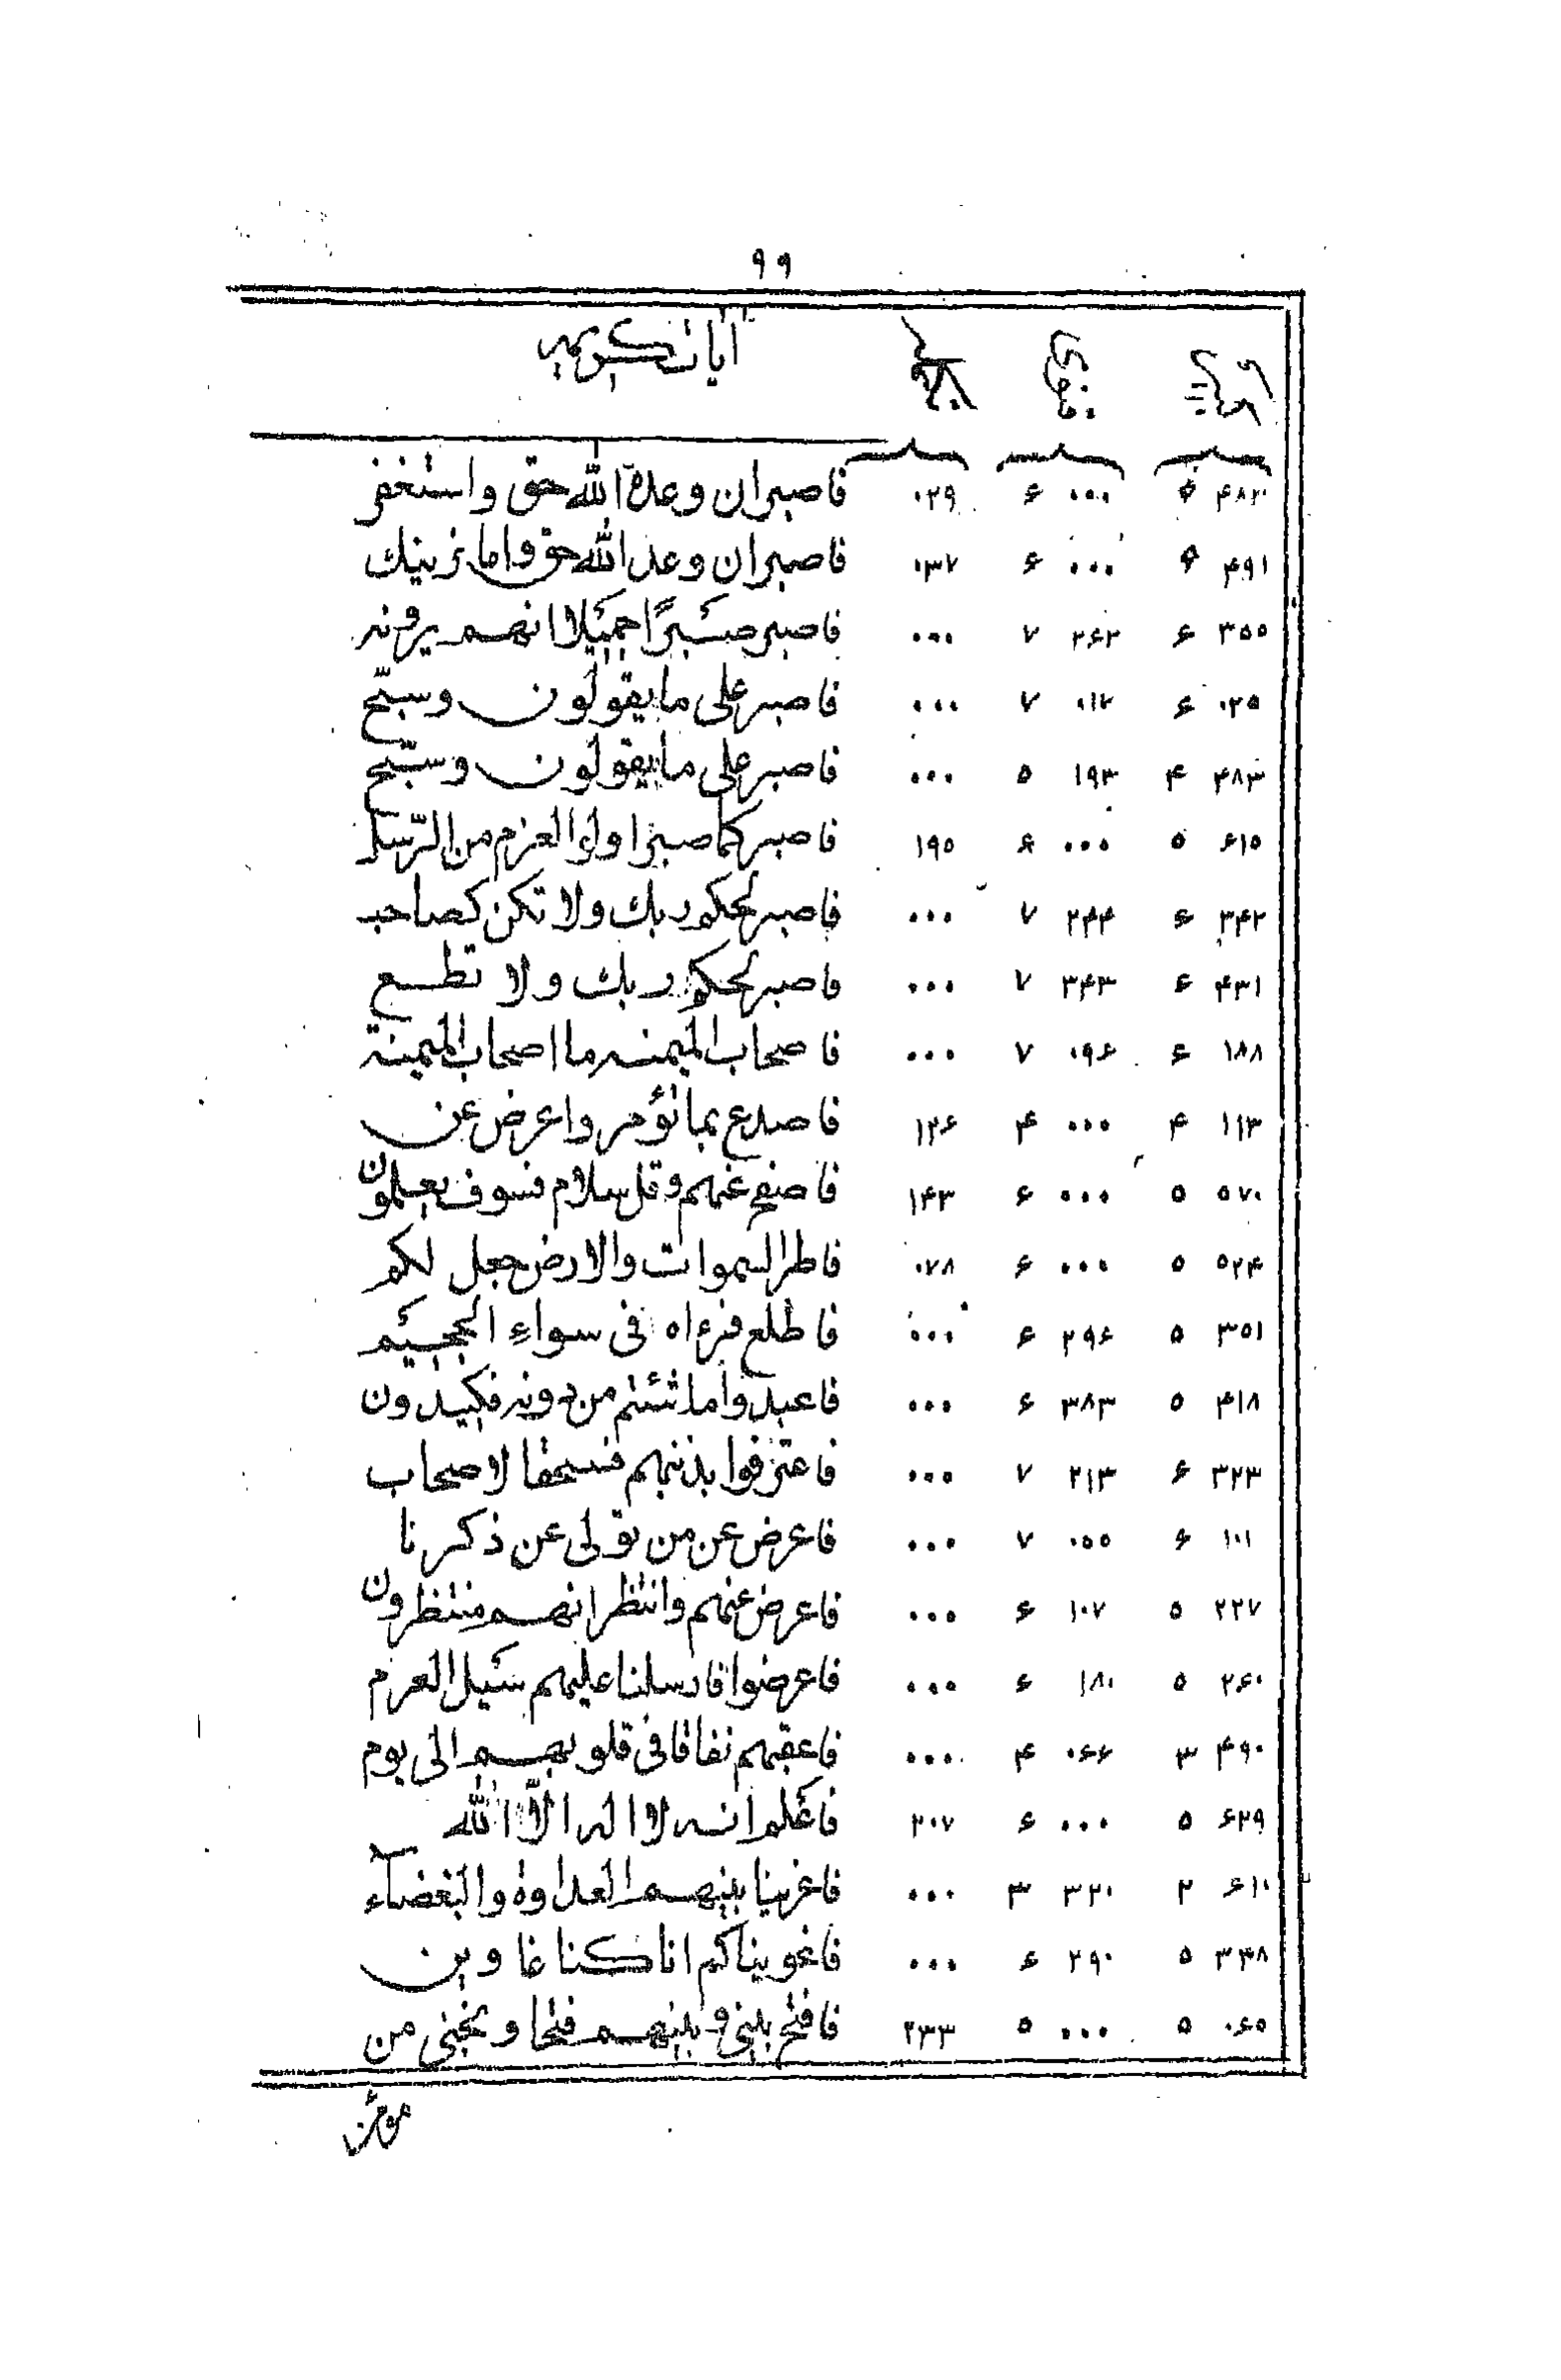 ٩٩
آيات كريمه
۴۸۲ ۵ ۰۰۰ ۶ ۰۲۹ فاصبر ان وعد الله حق واستغفر
۴۹۱ ۵ ۰۰۰ ۶ ۰۳۷ فاصبر ان وعد الله حق واما نرينك
۳۵۵ ۶ ۲۶۲ ۷ ۰۰۰ فاصبر صبرًا جميلا انهم يرونه
۰۲۵ ۶ ۰۱۲ ۷ ۰۰۰ فاصبر على ما يقولون وسبّح
۴۸۳ ۴ ۱۹۳ ۵ ۰۰۰ فاصبر على ما يقولون وسبّح
۶۱۵ ۵ ۰۰۰ ۶ ۱۹۵ فاصبر كما صبر اولوا العزم من الرّسل
۳۴۲ ۶ ۲۴۴ ۷ ۰۰۰ فاصبر لحكم ربك ولا تكن كصاحب
۴۳۱ ۶ ۳۴۳ ۷ ۰۰۰ فاصبر لحكم ربك ولا تطع
۱۸۸ ۶ ۰۹۶ ۷ ۰۰۰ فاصحاب الميمنه ما اصحاب الميمينة
۱۱۳ ۴ ۰۰۰ ۴ ۱۲۶ فاصدع بما تؤمر واعرض عن
۵۷۰ ۵ ۰۰۰ ۶ ۱۴۳ فاصفح عنهم وقل سلام فسوف يعلمون
۵۲۴ ۵ ۰۰۰ ۶ ۰۷۸ فاطر السموات والارض جعل لكم
۳۵۱ ۵ ۲۹۶ ۶ ۰۰۰ فاطلع فرءاه فى سواءِ الجحيم
۴۱۸ ۵ ۳۸۳ ۶ ۰۰۰ فاعبدوا ما شئتم من دونه فكيدون
۳۲۳ ۶ ۲۱۳ ۷ ۰۰۰ فاعترفوا بذنبهم فسحقا لاصحاب
۱۰۱ ۶ ۰۵۵ ۷ ۰۰۰ فاعرض عن من تولى عن ذكرنا
۲۲۷ ۵ ۱۰۷ ۶ ۰۰۰ فاعرض عنهم وانتظر انهم منتظرون
۲۶۰ ۵ ۱۸۰ ۶ ۰۰۰ فاعرضوا فارسلنا عليهم سيل العرم
۴۹۰ ۳ ۰۶۶ ۴ ۰۰۰ فاعقبهم نفاقا فى قلوبهم الى يوم
۶۲۹ ۵ ۰۰۰ ۶ ۲۰۷ فاعلم انه لا اله الّا الله
۶۱۰ ۲ ۳۲۰ ۳ ۰۰۰ فاغرينا بينهم العداوة والبغضآء
۳۳۸ ۵ ۲۹۰ ۶ ۰۰۰ فاغويناكم انا كنا غاوين
۰۶۵ ۵ ۰۰۰ ۵ ۲۳۳ فافتح بينى وبينهم فتحا ونجنى من